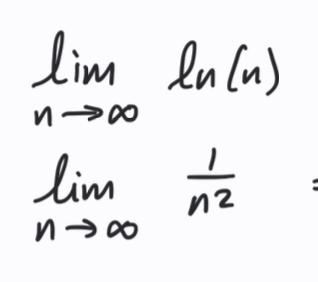 lim n→∞ ln(n)
lim n→∞ 1/n² =